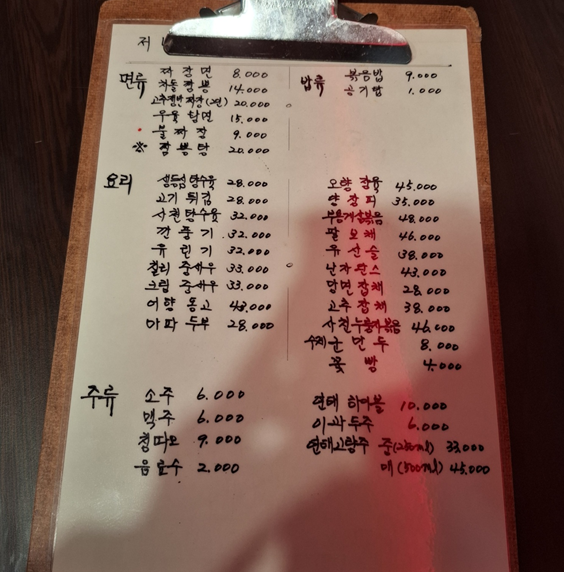 저
면류
짜장면 8.000
차돌짬뽕 14.000
고추쟁반짜장(2인) 20.000
우육탕면 15.000
불짜장 9.000
※ 짬뽕탕 20.000
밥류
볶음밥 9.000
공기밥 1.000
요리
생등심탕수육 28.000
고기튀김 28.000
사천탕수육 32.000
깐풍기 32.000
유린기 32.000
칠리중새우 33.000
크림중새우 33.000
어향동고 43.000
마파두부 28.000
오향장육 45.000
양장피 35.000
부용게살볶음 48.000
팔보채 46.000
유산슬 38.000
난자완스 43.000
당면잡채 28.000
고추잡채 38.000
사천누룽지볶음 46.000
수제군만두 8.000
꽃빵 4.000
주류
소주 6.000
맥주 6.000
칭따오 9.000
음료수 2.000
연태하이볼 10.000
이과두주 6.000
연태고량주 중(250ml) 33.000
대(500ml) 45.000